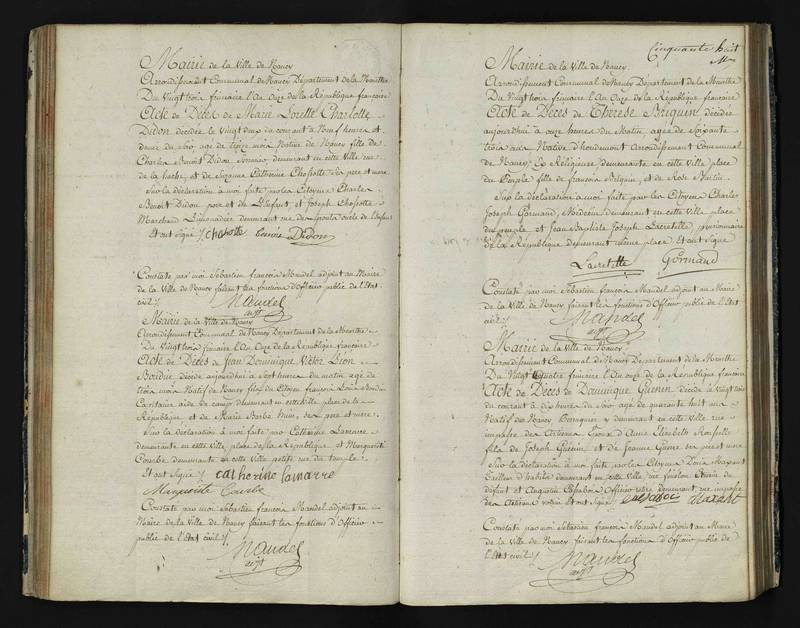 Mairie de la Ville de Nancy
Arrondissement Communal de Nancy Département de la Meurthe
Du Vingt trois frimaire l'An Onze de la République francaise
Acte de Décès de Marie Lorette Charlotte
Didon décédée le Vingt deux du courant à Neuf heures et
demie du Soir age de treize mois Native de Nancy fille de
Charles Benoit Didon demeurant en cette Ville rue
de la hache, et de Suzanne Catherine Chopotte ses pere et mere
Sur la déclaration à moi faite par les Citoyens Charles
Benoit Didon pere et de l'Enfant et Joseph Chopotte
Marchand Limonadier demeurant rue oncle de l'enfant
Et ont signé /. Chopotte Benois Didon
Constaté par moi Sébastien françois Mandel adjoint au Maire
de la Ville de Nancy faisant les fonctions d'Officier public de l'Etat
civil /. Mandel
adjt
Mairie de la Ville de Nancy
Arrondissement Communal de Nancy Département de la Meurthe
Du Vingt trois frimaire l'An Onze de la République francaise
Acte de Décès de Jean Dominique Victor Léon
décédé aujourd'hui à Sept heures du matin agé de
trois mois Natif de Nancy fils du Citoyen françois Louis
Capitaine aide de camp demeurant en cette Ville place de la
République et de Marie Barbe ses pere et mere.
Sur la déclaration à moi faite par Catherine Lamarre
demeurante en cette Ville place de la République et Marguerite
Courbe demeurante en cette Ville petite rue du temple.
Et ont signé /. Catherine Lamarre
Marguerite Courbe
Constaté par moi Sébastien françois Mandel adjoint au
Maire de la Ville de Nancy faisant les fonctions d'Officier
public de l'Etat civil /.
Mandel
adjt
Cinquante huit
Mairie de la Ville de Nancy
Arrondissement Communal de Nancy Département de la Meurthe
Du Vingt trois frimaire l'An Onze de la République francaise
Acte de Décès de Thérèse Briquin, décédée
aujourd'hui à onze heures du Matin, agée de Soixante
trois ans Native d'hendemont Arrondissement Communal
de Nancy, Ex Réligieuse demeurante en cette Ville place
du Peuple fille de françois Briquin, et de Rose
Sur la déclaration à moi faite par les Citoyens Charles
Joseph Gormand, Médecin demeurant en cette Ville place
du peuple et Jean Baptiste Joseph Lacretelle, pensionnaire
de la République demeurant même place, Et ont signé
Lacretelle Gormand
Constaté par moi Sébastien françois Mandel adjoint au Maire
de la Ville de Nancy faisant les fonctions d'Officier public de l'Etat
civil /. Mandel
adjt
Mairie de la Ville de Nancy
Arrondissement Communal de Nancy Département de la Meurthe
Du Vingt Quatre frimaire l'An Onze de la République francaise
Acte de Décès de Dominique Guenin décédé le Vingt trois
du courant à dix heures du Soir agé de quarante huit ans
Natif de Nancy demeurant en cette Ville rue
impasse des Epoux d'Anne Elizabeth
fils de Joseph Guenin et de Jeanne ses pere et mere
Sur la déclaration à moi faite par les Citoyens
Tailleur d'habits demeurant en cette Ville
défunt et Augustin Officier demeurant rue impasse
Et ont signé
Constaté par moi Sébastien françois Mandel adjoint au Maire
de la Ville de Nancy faisant les fonctions d'Officier public de
l'Etat civil /. Mandel
adjt